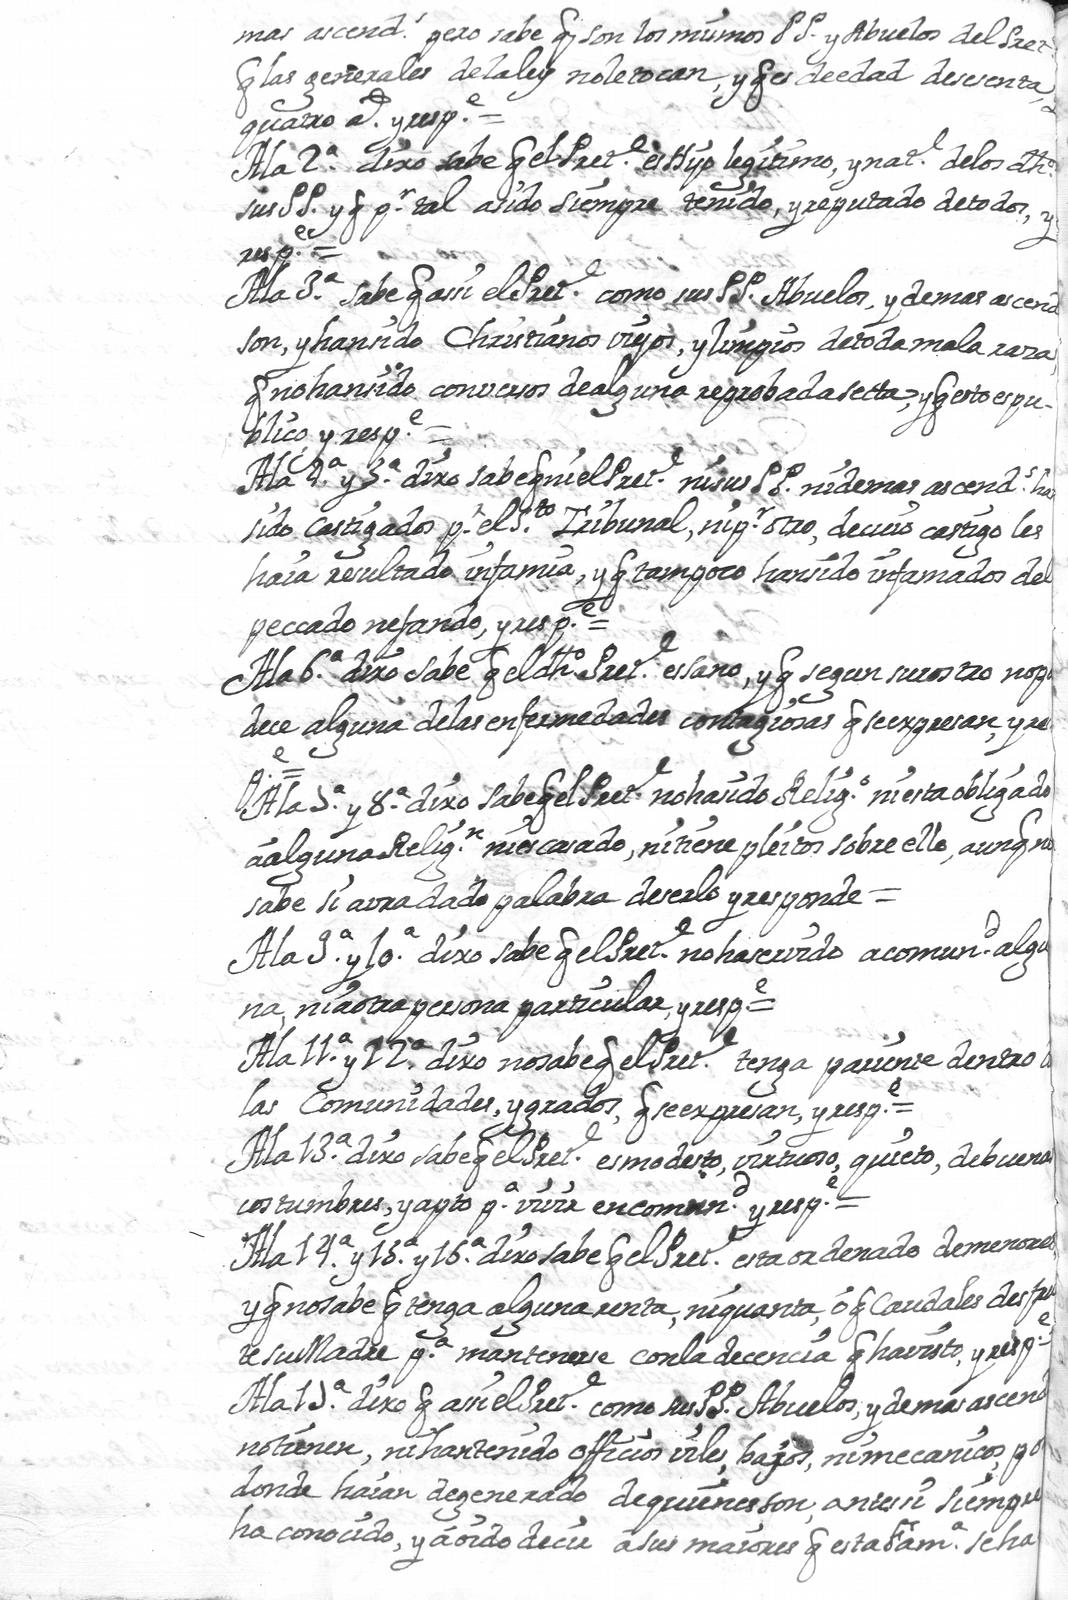 mas ascend.s pero sabe q son los mismos PP. y Abuelos del Pret.e
q las generales de la ley no le tocan, y q es de edad de sesenta, y
quatro a.s y resp.e =
A la 2.a dixo sabe q el Pret.e es Hijo legitimo, y nat.l de los dhos
sus PP. y q p.r tal a sido siempre tenido, y reputado de todos, y
resp.e =
A la 3.a sabe q assi el Pret.e como sus PP. Abuelos, y demas ascend
son, y han sido Christianos viejos, y limpios de toda mala raza,
q no han sido conversos de alguna reprobada secta, y q esto es pu-
blico y resp.e =
A la 4.a y 5.a dixo sabe q ni el Pret.e ni sus PP. ni demas ascend.s ha
sido castigados p.r el S.to Tribunal, ni p.r otro, de cuio castigo les
haia resultado infamia, y q tampoco han sido infamados del
peccado nefando, y resp.e =
A la 6.a dixo sabe q el dho Pret.e es sano, y q segun su rostro no pa
dece alguna de las enfermedades contagiosas q se expresan, y res
p.e =
A la 7.a y 8.a dixo sabe q el Pret.e no ha sido Relig.o ni esta obligado
a alguna Relig.n ni es casado, ni tiene pleitos sobre ello, aunq no
sabe si avra dado palabra de serlo y responde =
A la 9.a y 10.a dixo sabe q el Pret.e no ha servido a comun.d algu
na, ni a otra persona particular, y resp.e =
A la 11.a y 12.a dixo no sabe q el Pret.e tenga pariente dentro
las Comunidades, y grados, q se expresan, y resp.e =
A la 13.a dixo sabe q el Pret.e es modesto, virtuoso, quieto, de buenas
costumbres, y apto p.a vivir en comun.d y resp.e =
A la 14.a y 15.a y 16.a dixo sabe q el Pret.e esta ordenado de menores,
y q no sabe q tenga alguna renta, ni quanta, o q Caudales desfru
te su Madre p.a mantenerse con la decencia q ha visto, y resp.e
A la 17.a dixo q assi el Pret.e como sus PP. Abuelos, y demas ascend
no tienen, ni han tenido officios viles, bajos, ni mecanicos, po
donde haian degenerado de quienes son, antes si siempre
ha conocido, y a oido decir a sus maiores q esta Fam.a se ha